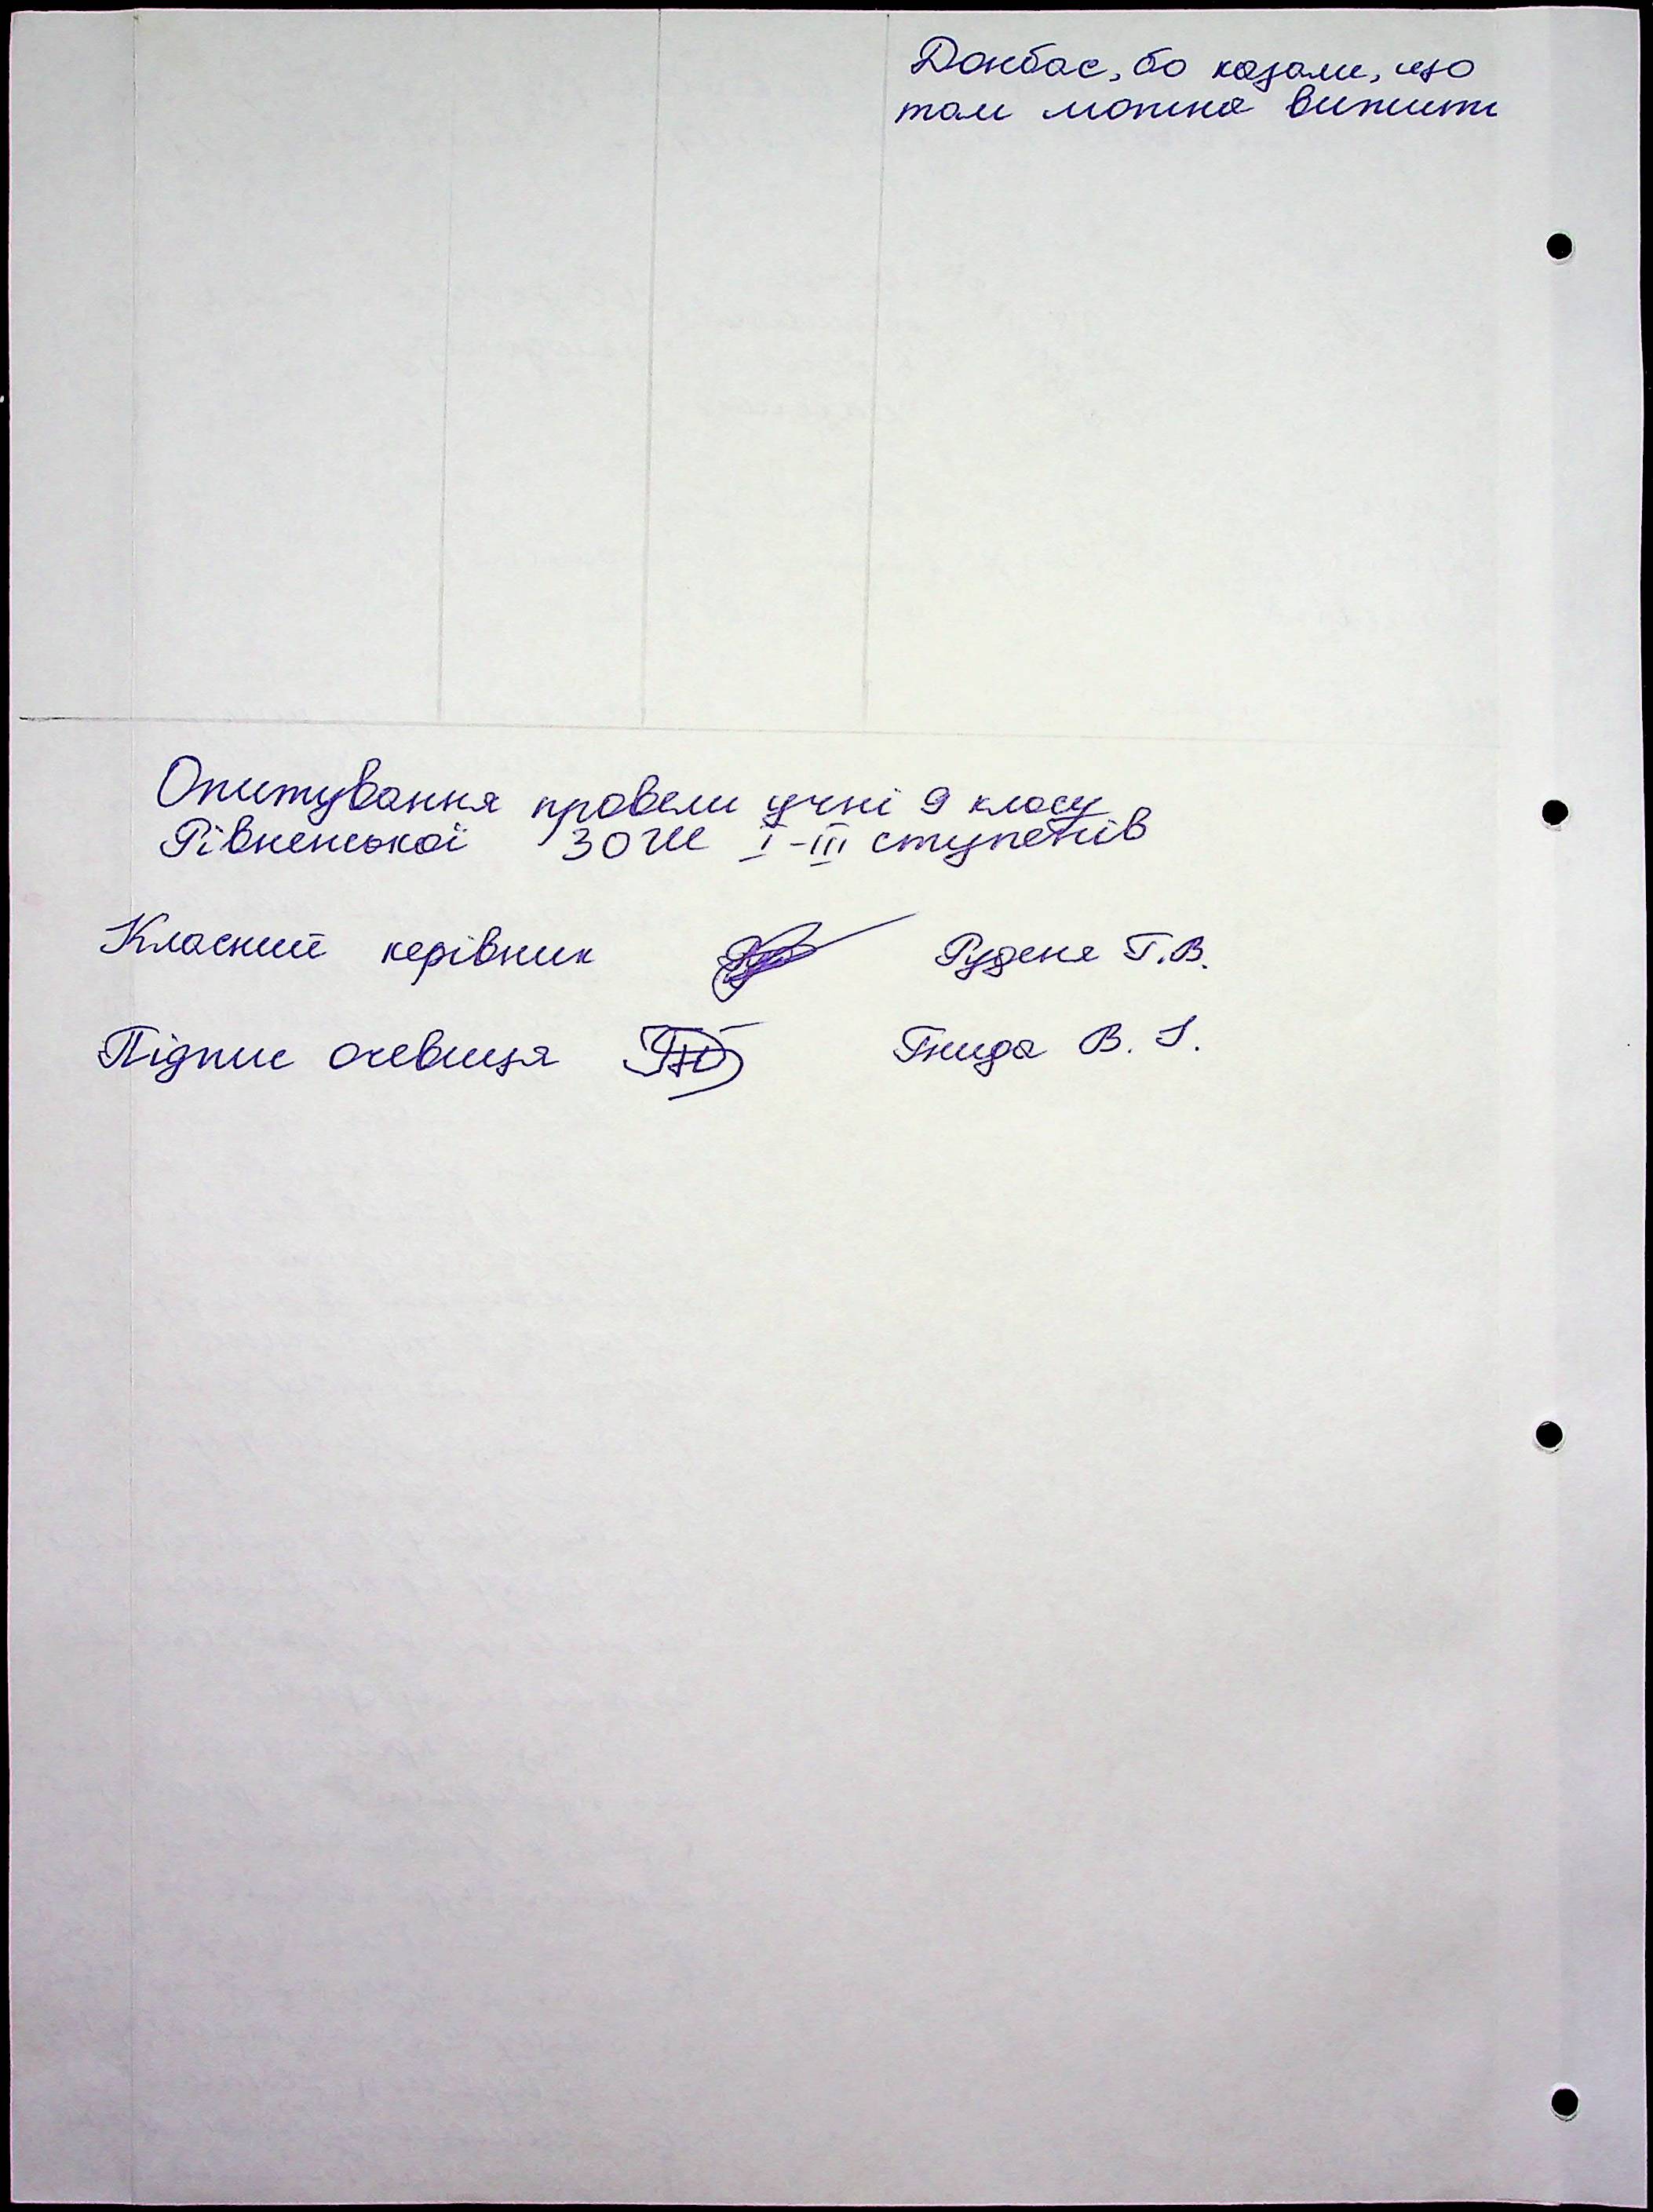 Донбас, бо казали, що
там можна вижити
Опитування провели учні 9 класу
Рівненської ЗОШ І-ІІІ ступенів
Класний керівник Руденя Г.В.
Підпис очевидця Гнида В. І.